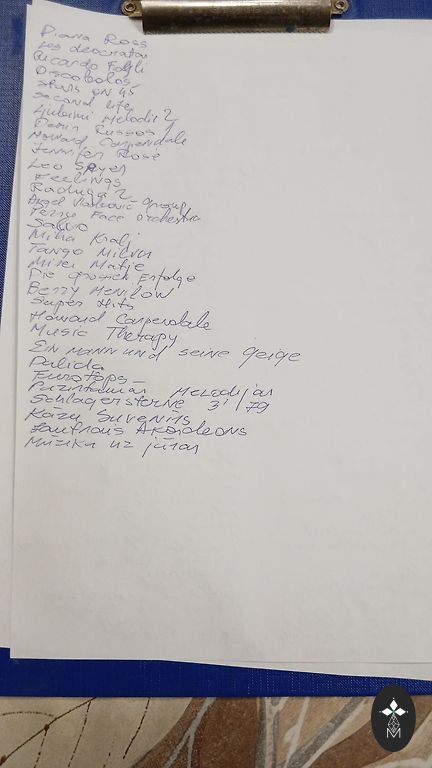 Diana Ross
Los decoratos
Ricardo Fogli
Discobolos
Stars on 45
Second life
Ljubimi Melodii 2
Demis Russos 1
Howard Carpendale
Jennifer Rose
Leo Sayer
Feelings
Raduga 2
Angel Vlatkovic Group
Ferse Face orchestra
Salvo
Miha Kralj
Tango Milva
Mirej Matje
Die grossen Erfolge
Berry Menilow
Super Hits
Howard Carpendale
Music Therapy
Ein mann und seine geige
Palida
Eurotops
Melodijas
Schlagersterne 3' 79
Kāzu Suvenīrs
Akordeons
Mūzika uz jūras
M